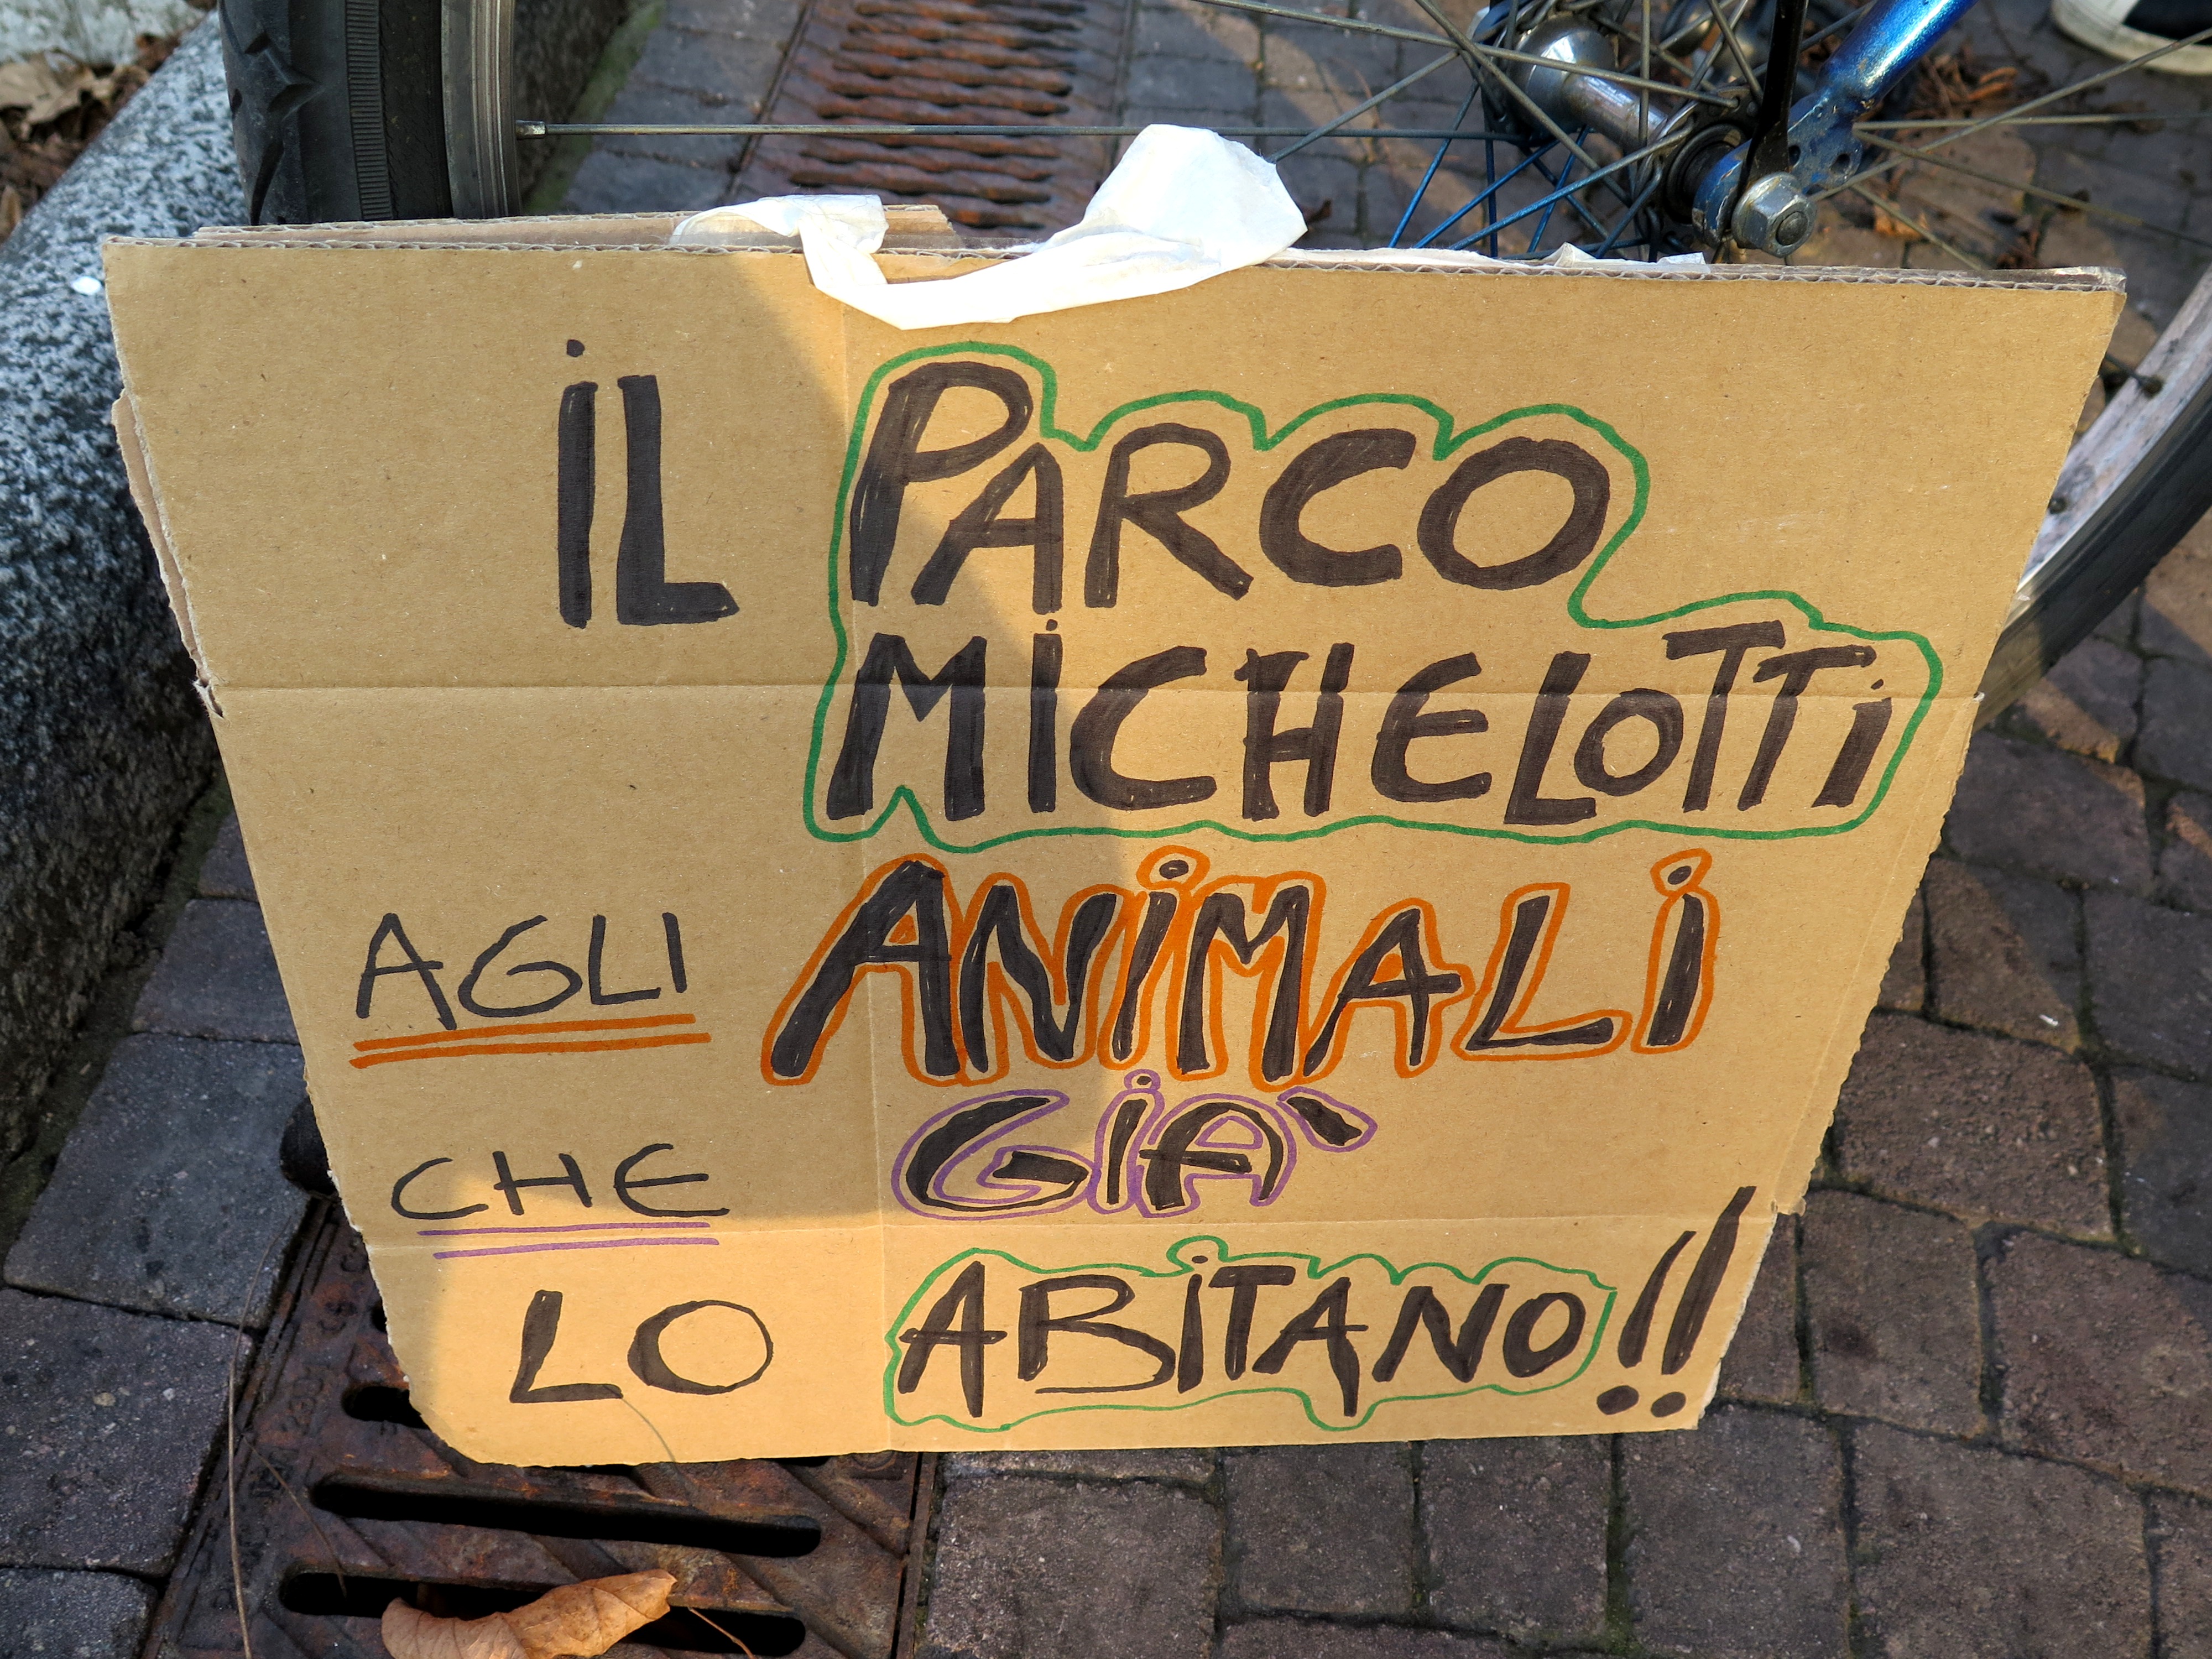 iL PARCO
MiCHELOTTi
AGLI ANiMALi
CHE GIÀ
LO ABiTANO!!